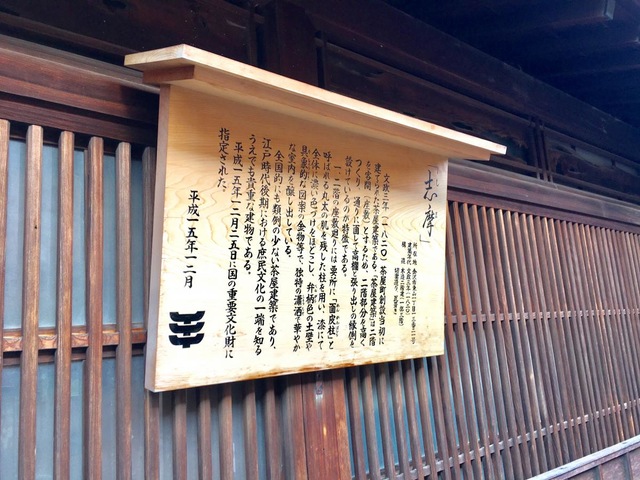 「志摩」
所在地 金沢市東山一丁目一三番二一号
建築年代 文政三年(一八二〇)
構造 木造二階建(一部平屋)
文政三年(一八二〇)茶屋町創設当初に
建てられた茶屋建築である。茶屋建築は二階
を客間(座敷)とするため、二階部分を高く
つくり、通りに面して高欄と張り出しの縁側を
設けているのが特徴である。
一、二階の座敷廻りには要所に、「面皮柱」と
呼ばれる丸太の肌を残した柱を用い、漆にて
全体に濃い色づけをほどこし、弁柄色の土壁や
具象的な図案の金物等で、独特の瀟洒で華やか
な室内を醸し出している。
全国的にも類例の少ない茶屋建築であり、
江戸時代後期における庶民文化の一端を知る
うえでも貴重な建物である。
平成一五年一二月二五日に国の重要文化財に
指定された。
平成一五年一二月